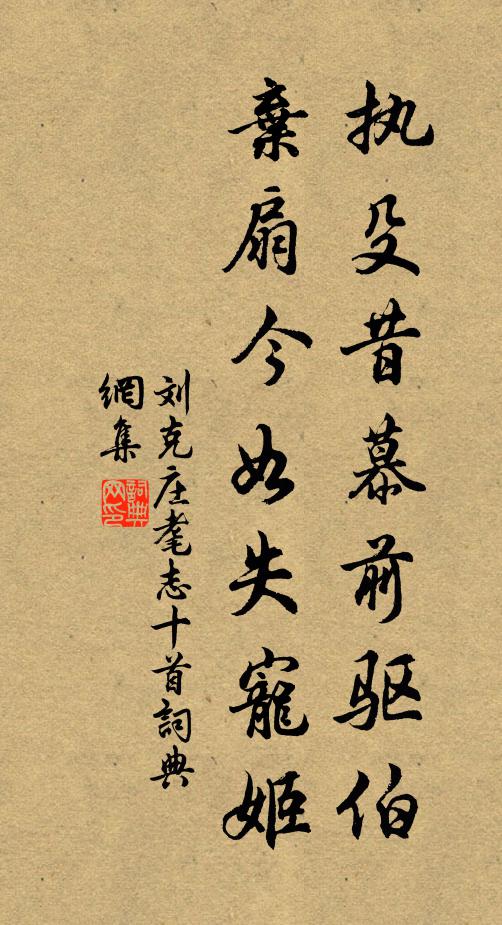 执殳昔慕前驱伯
棄扇今如失寵姬
刘克庄耄志十首詞典
網集
詞典網印